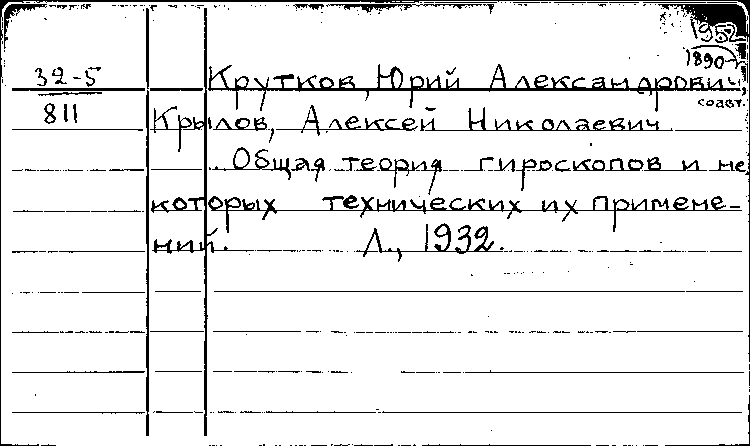 1952
1890-
32-5
811
Крутков, Юрий Александрович,
соавт.
Крылов, Алексей Николаевич
...Общая теория гироскопов и не
которых технических их примене-
ний. Л., 1932.